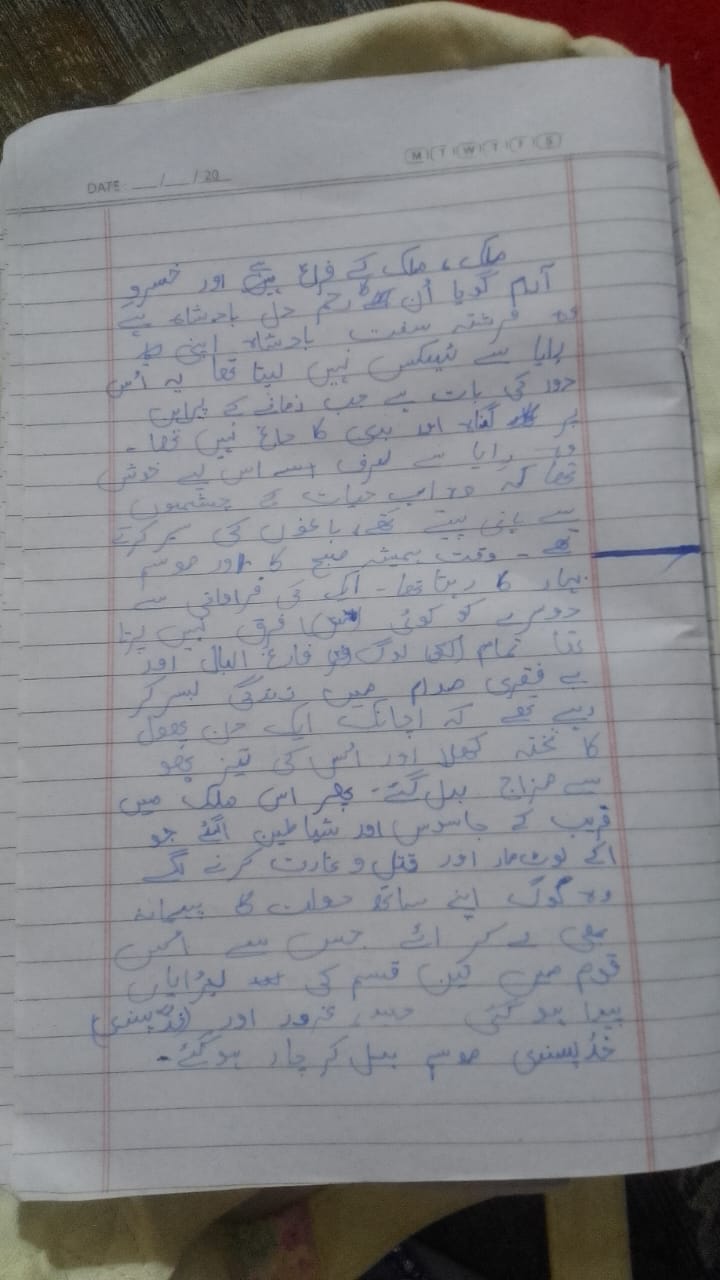 M T W T F S
DATE: __/__/20__
ملک، ملک کے فراغ ہے اور خسرو
آرام گویا اُن کا رحم دل بادشاہ ہے
وہ فرشتہ سفت بادشاہ اپنی
رایا سے ٹیکس نہیں لیتا تھا یہ اُس
دور کی بات ہے جب زمانے کے
پر گناہ اور بدی کا داغ نہیں تھا۔
وہ رایا سے صرف اس لیے خوش
تھا کہ وہ اب حیات کے چشموں
سے پانی پیتے تھے، باغوں کی سیر کرتے
تھے۔ وقت ہمیشہ صبح کا اور موسم
بہار کا رہتا تھا۔ ایک کی فراوانی سے
دوسرے کو کوئی فرق نہیں پڑتا
تھا تمام لوگ فارغ البال اور
بے فقری مدام میں زندگی بسر کر
رہے تھے کہ اچانک ایک دن پھول
کا تختہ کھلا اور اس کی تیز بو
سے مزاج بدل گئے۔ پھر اس ملک میں
فریب کے جاسوس اور شیاطین آگئے جو
آکے لوٹ مار اور قتل و غارت کرنے لگے
وہ لوگ اپنے ساتھ دولت کا پیمانہ
بھی لے کر ائے جس سے اس
قوم میں تین قسم کی لڑایاں
پیدا ہو گئی حسد، غرور اور (خد پسندی)
خد پسندی موسم بدل کر چار ہو گئے۔